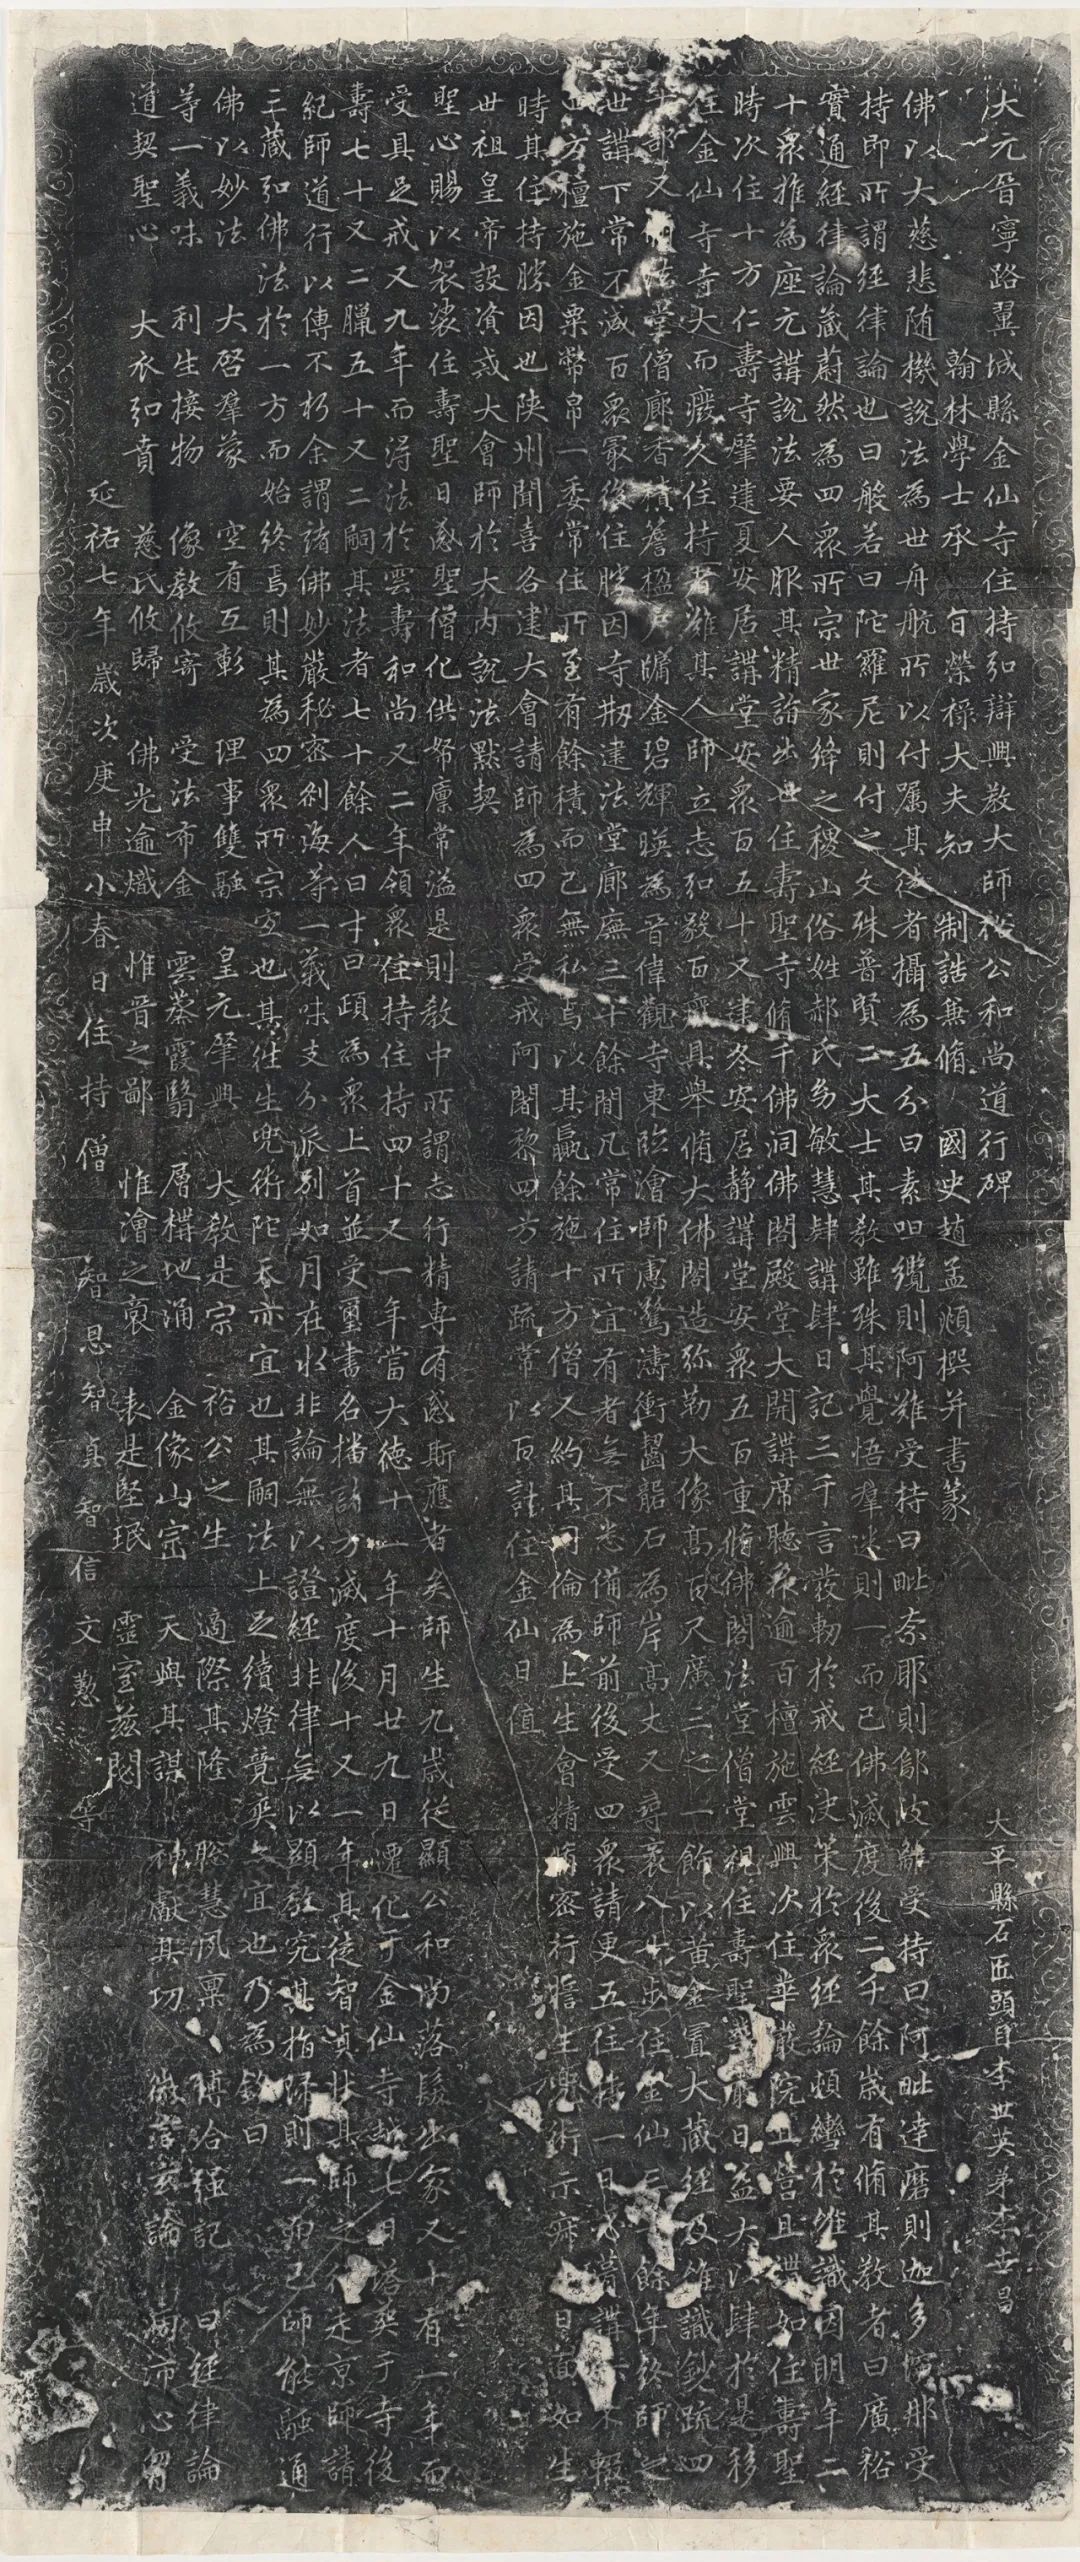 大元晉寧路翼城縣金仙寺住持弘辯興教大師裕公和尚道行碑
大平縣石匠頭目李世英弟李世昌
翰林學士承旨榮祿大夫知制誥兼脩國史趙孟頫撰并書篆
佛以大慈悲随機說法為世舟航所以付囑其後者攝為五分曰素呾纜則阿難受持曰毗奈耶則鄔波離受持曰阿毗達磨則迦多衍那受
持即所謂經律論也曰般若曰陀羅尼則付之文殊普賢二大士其教雖殊其覺悟羣迷則一而已佛滅度後二千餘歲有脩其教者曰廣裕
實通經律論藏蔚然為四眾所宗世家絳之稷山俗姓郝氏幼敏慧肆講肆日記三千言發軔於戒經決策於眾經論頓轡於維識因明年二
十眾推為座元講說法要人服其精詣出世住壽聖寺脩千佛洞佛閣殿堂大開講席聽希逾百檀施雲興次住華嚴院且營且講如住壽聖
時次住十方仁壽寺肇建夏安居講堂安眾百五十又建冬安居静講堂安眾五百重脩佛閣法堂僧堂視住壽聖華嚴日益大以肆於是移
住金仙寺寺大而廢久住持者難其人師立志弘發百廢具舉脩大佛閣造弥勒大像髙百尺廣三之一飾以黄金置大藏經及維識鈔疏四
十部又法堂僧廊香積簷楹戶牖金碧輝暎為晉偉觀寺東臨澮師慮驚濤衝齧甃石為岸髙丈又尋袤八十步住金仙三十餘年終師之
世講下常不減百眾冣後住勝因寺剏建法堂廊廡三十餘間凡常住所宜有者無不悉備師前後受四眾請更五住持一日必萠講不輟
四方檀施金粟幣帛一委常住所至有餘積而己無私焉以其羸餘施十方僧又約其同倫為上生會精脩密行膽生兜術示寂日面如生
時其住持勝因也陝州聞喜各建大會請師為四眾受戒阿闍黎四方請疏常以百計住金仙日值
世祖皇帝設資戒大會師於大内說法默契
聖心賜以袈裟住壽聖日感聖僧化供帑廪常溢是則教中所謂志行精専有感斯應者矣師生九歲從顯公和尚落髮出家又十有一年而
受具足戒又九年而淂法於雲壽和尚又二年領眾住持住持四十又一年當大德十一年十月廿九日遷化于金仙寺越七日塔葬于寺後
壽七十又二臘五十又二嗣其法者七十餘人曰才曰頤為眾上首並受璽書名播諸方滅度後十又一年其徒智真狀其師之行走京師請
紀師道行以傳不朽余謂諸佛妙嚴秘密刹海等一義味支分派別如月在水非論無以證經非律無以顯教究其指歸則一而已師能融通
三藏弘佛法於一方而始終焉則其為四眾所宗宜也其往生兜術陀天亦宜也其嗣法上足續燈竟奕又宜也乃為銘曰
佛以妙法 大啓羣蒙 空有互彰 理事雙融 皇元肇興 大教是宗 裕公之生 適際其隆 聡慧夙稟 博洽强記 曰經律論
等一義味 利生接物 像教攸寄 受法布金 雲蒸霞翳 層構地涌 金像山崇 天與其謀 神獻其功 微言玄論 淘沛心胷
道契聖心 大衣弘賁 慈氏攸歸 佛光逾熾 惟晉之鄙 惟澮之裛 表是堅珉 靈室兹閟
延祐七年歲次庚申小春日住持僧 智恩智真智信文慜等